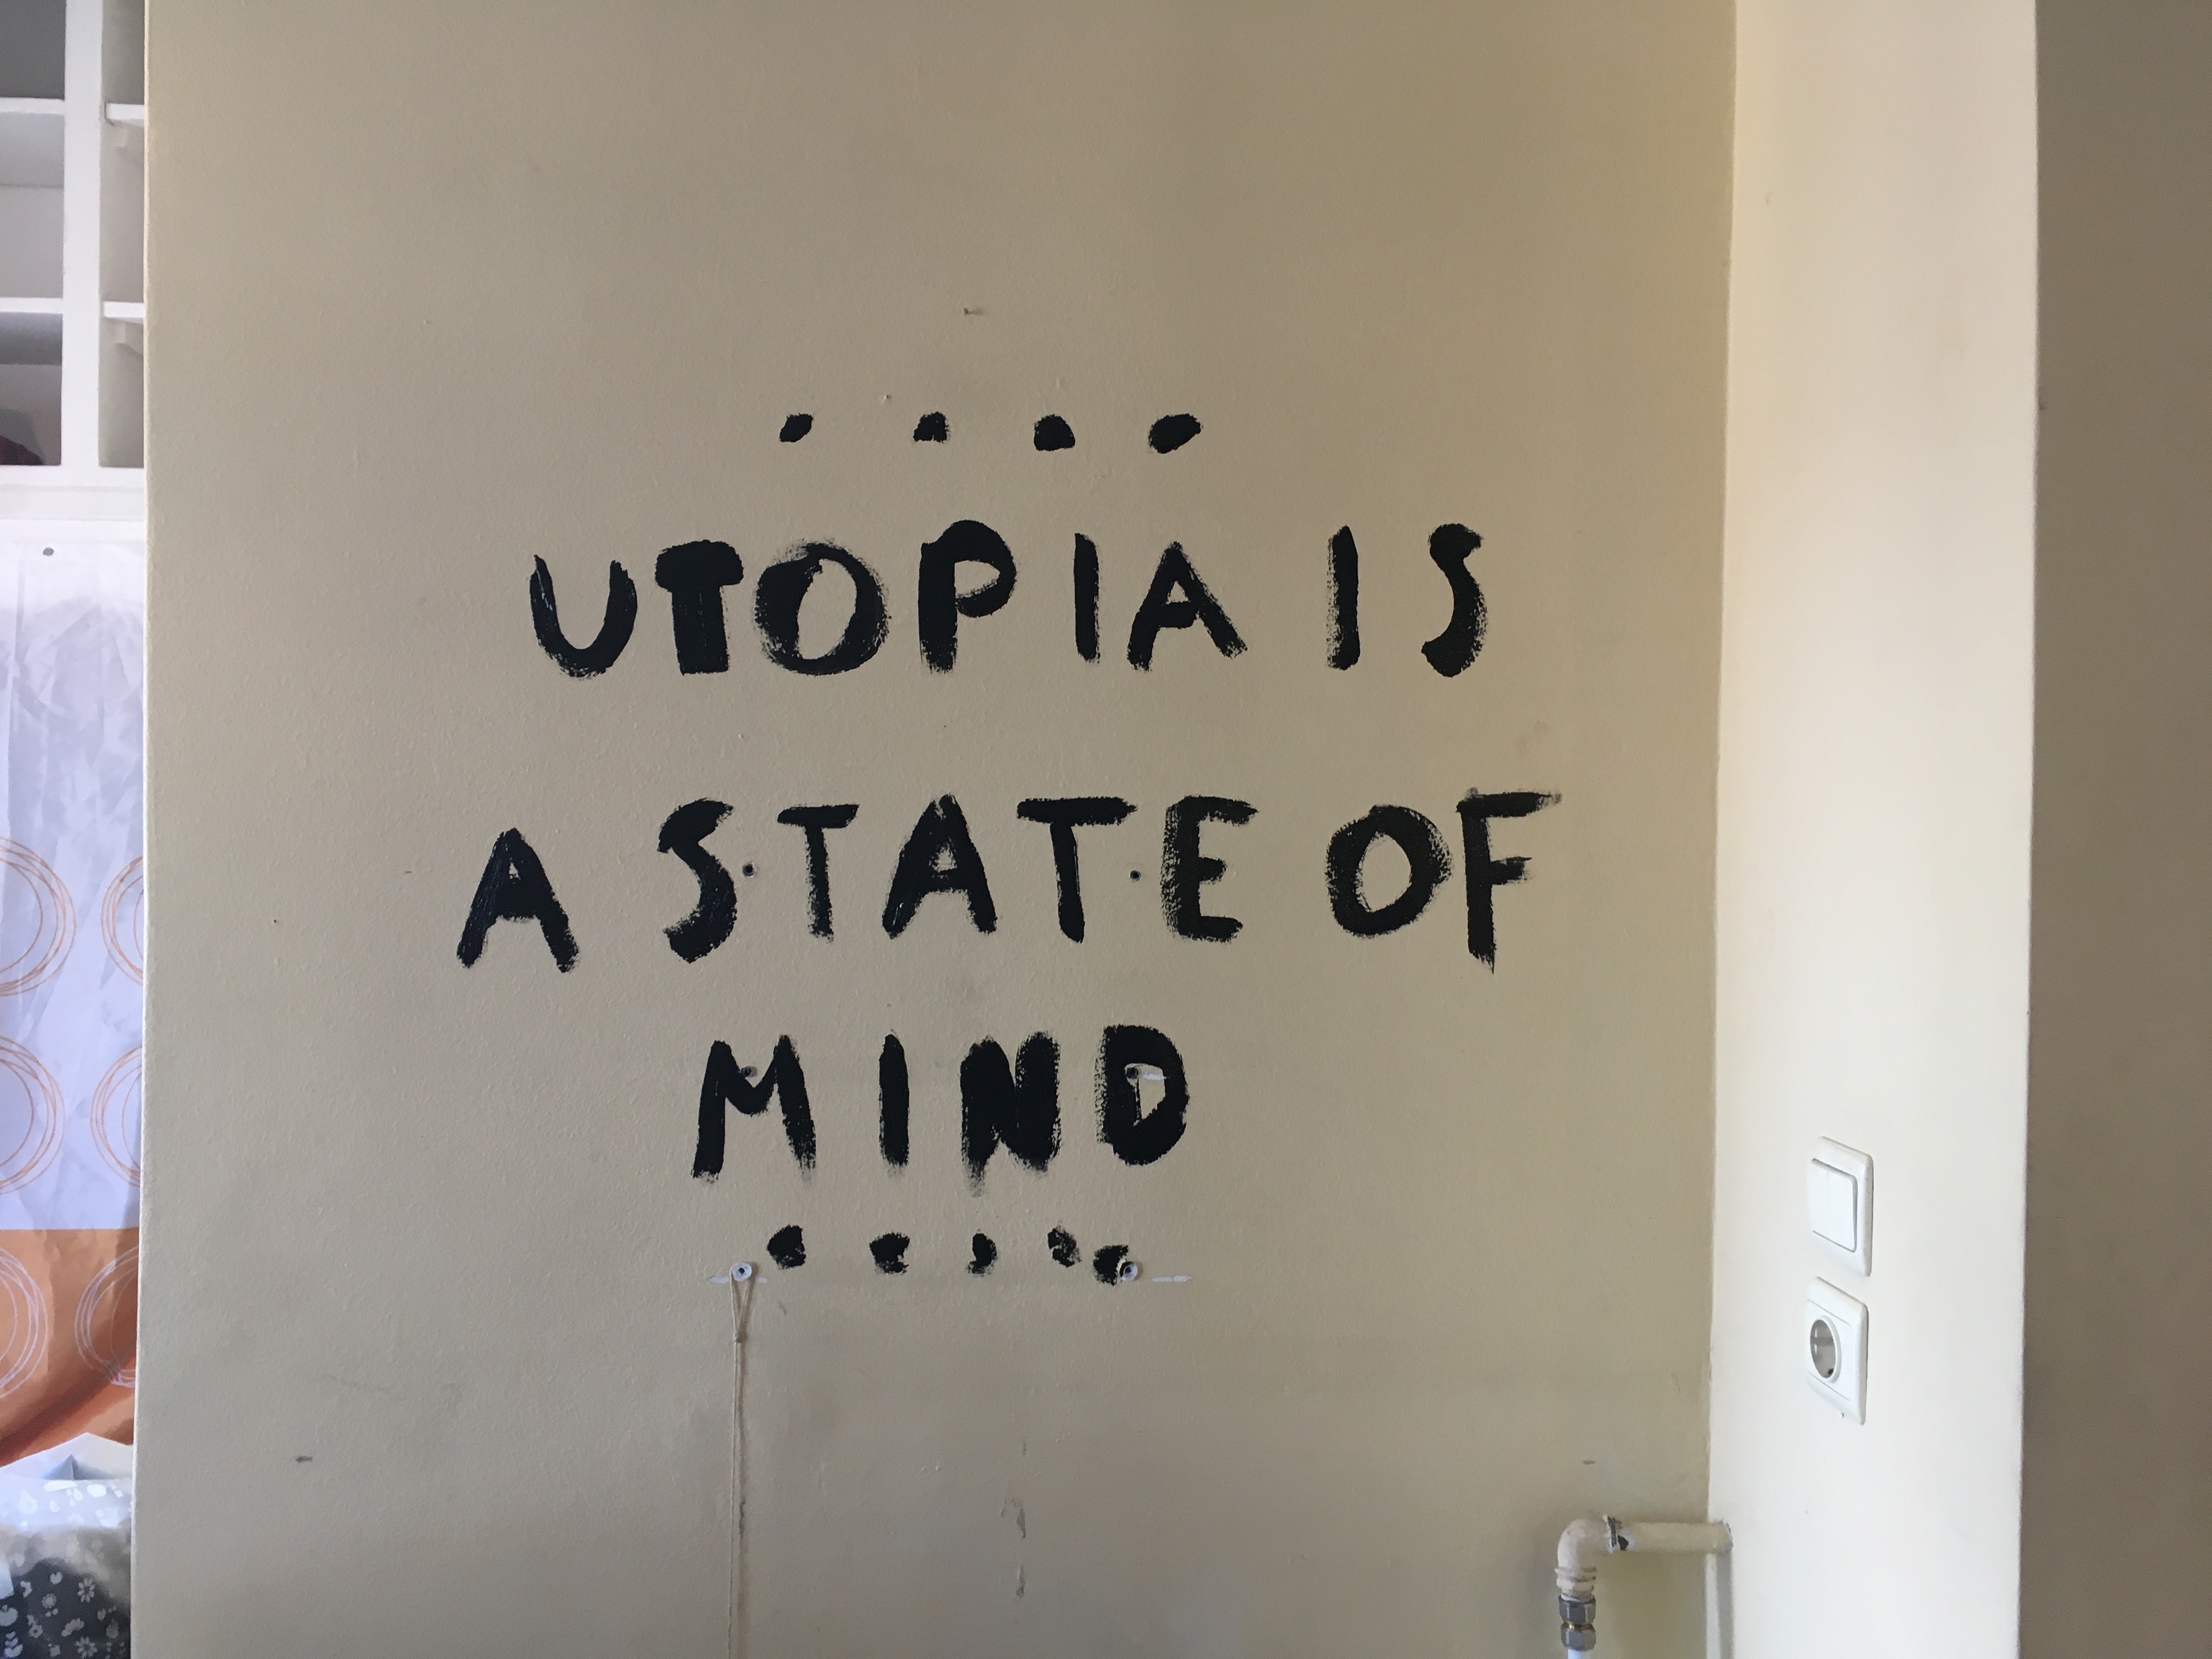 ....
UTOPIA IS
A STATE OF
MIND
.....